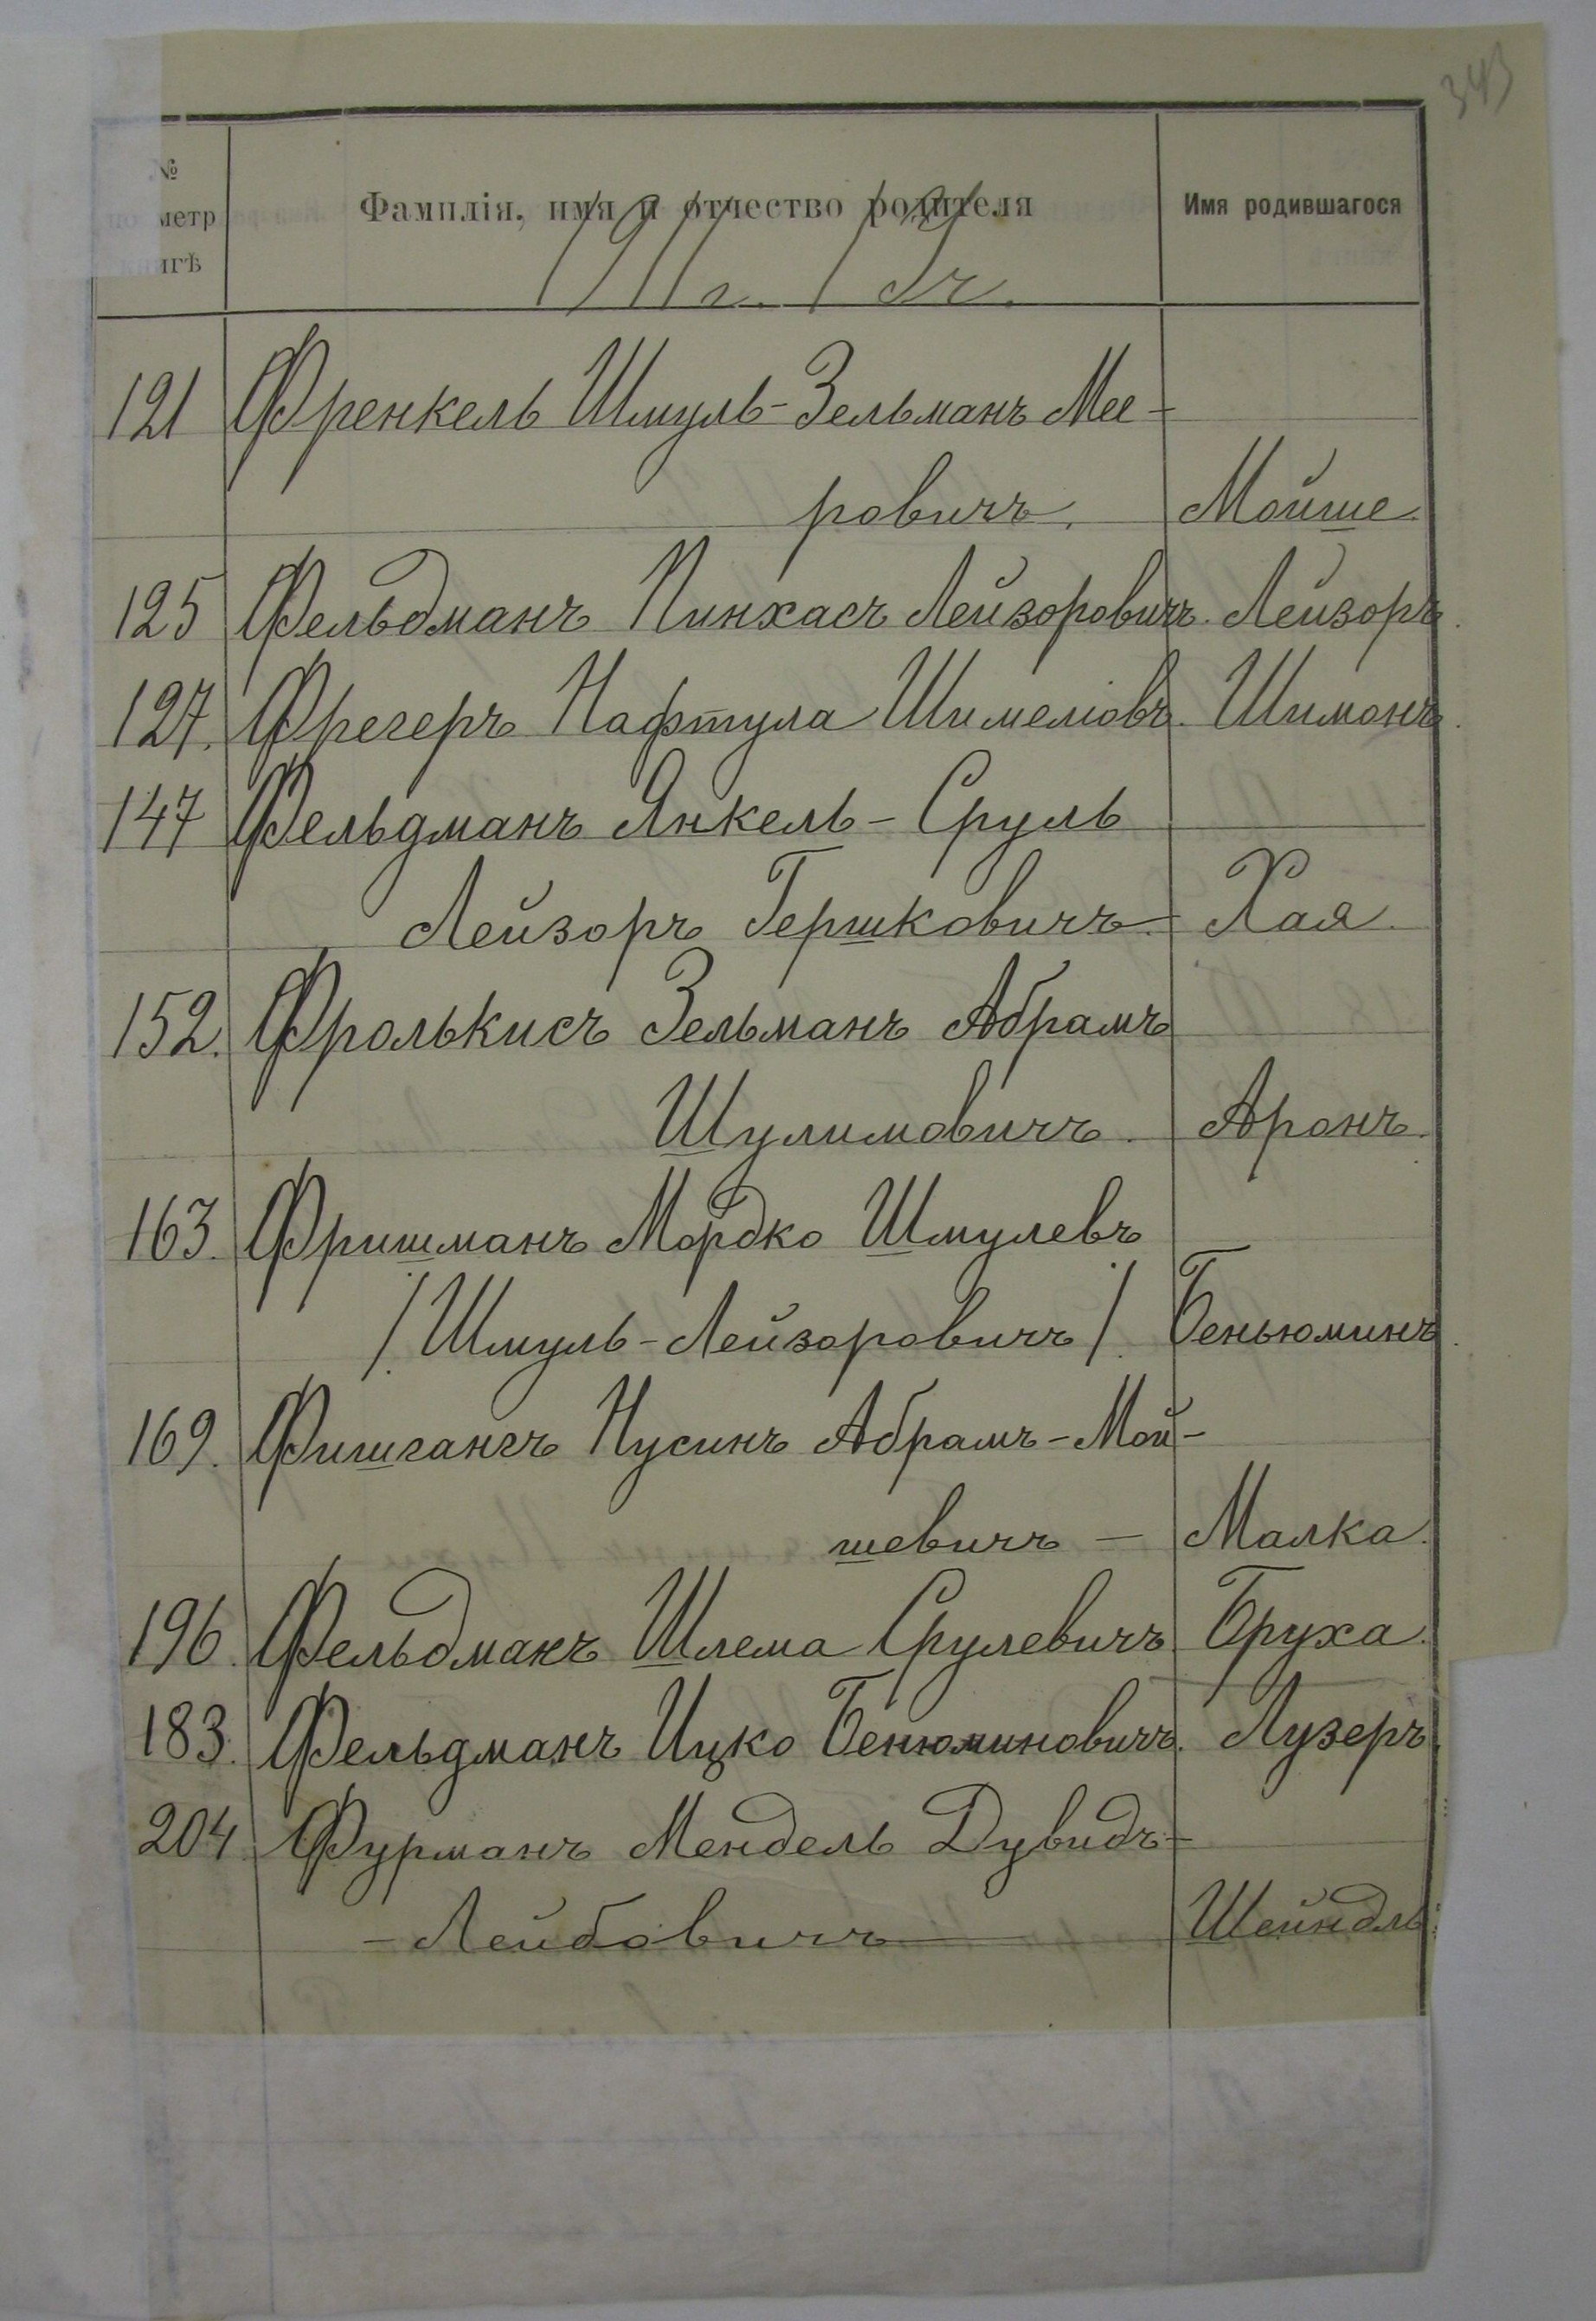 343
№
метр
игѣ
Фамилія, имя и отчество родителя
Имя родившагося
1911 г. 1 ч.
121 Френкель Шмуль-Зельманъ Мее-
ровичъ. Мойше.
125 Фельдманъ Пинхасъ Лейзоровичъ. Лейзоръ.
127. Фрегеръ Нафтула Шимеліовъ. Шимонъ.
147 Фельдманъ Янкель-Сруль
Лейзоръ Гершковичъ. Хая.
152. Фролькисъ Зельманъ Абрамъ
Шулимовичъ. Аронъ.
163. Фришманъ Мордко Шмулевъ
/Шмуль-Лейзоровичъ/. Беньюминъ.
169. Фишгангъ Нусинъ Абрамъ-Мой-
шевичъ — Малка.
196. Фельдманъ Шлема Срулевичъ. Бруха.
183. Фельдманъ Ицко Бенюминовичъ. Лузеръ.
204 Фурманъ Мендель Дувидъ-
-Лейбовичъ Шейндль.